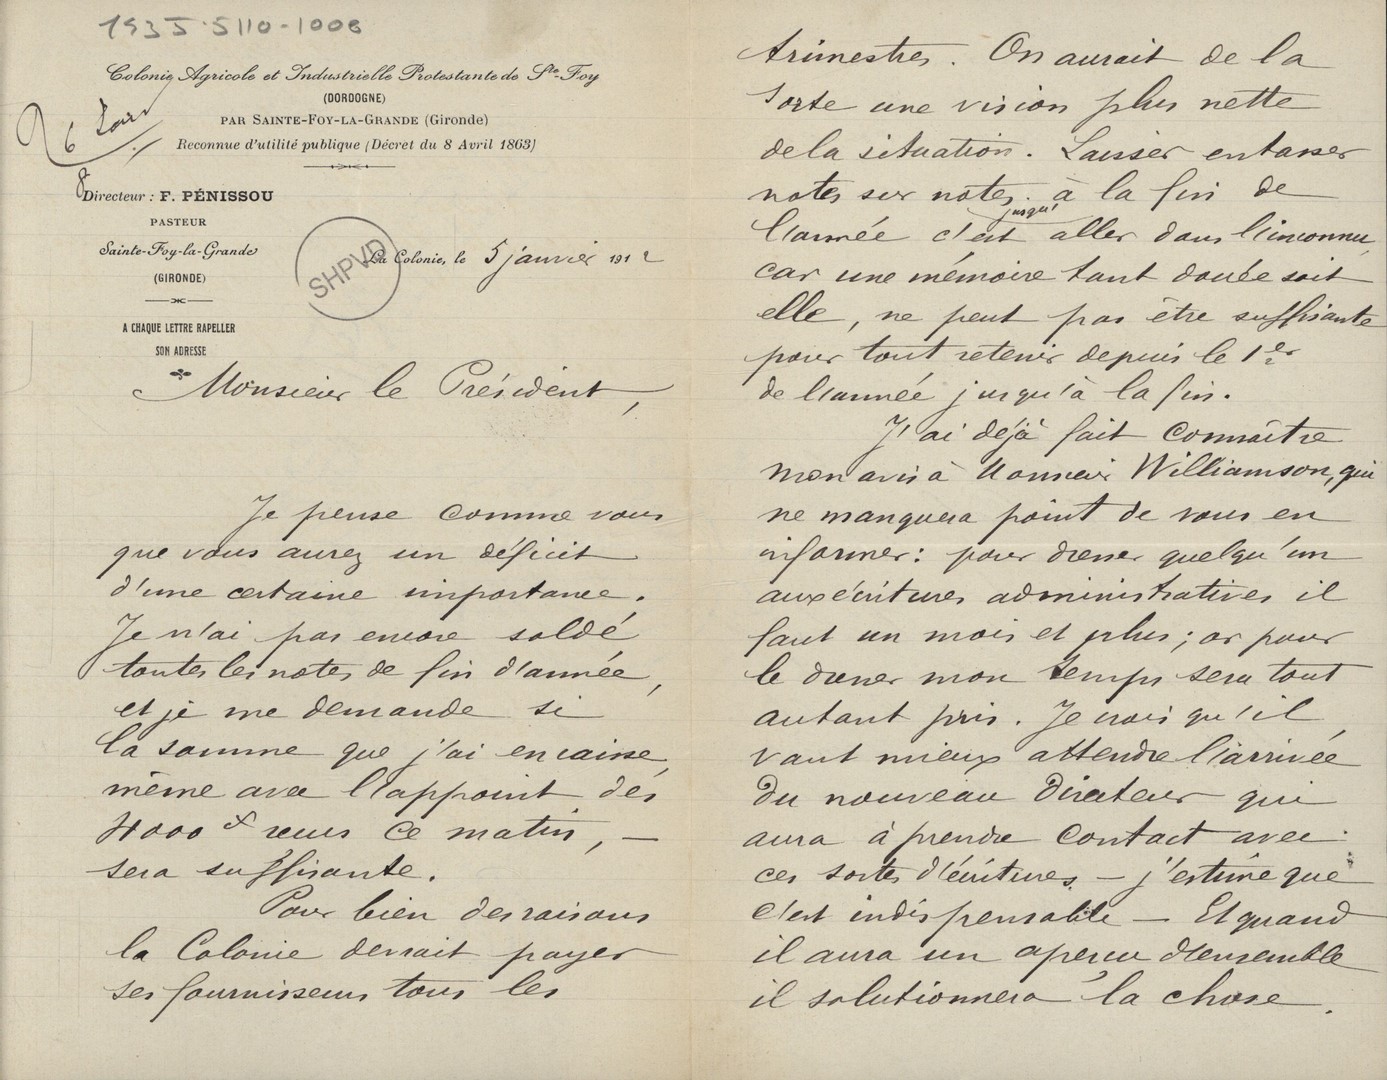 1935-5110-1008
Colonie Agricole et Industrielle Protestante de Ste-Foy
(DORDOGNE)
PAR SAINTE-FOY-LA-GRANDE (Gironde)
Reconnue d'utilité publique (Décret du 8 Avril 1863)
Directeur : F. PÉNISSOU
PASTEUR
Sainte-Foy-la-Grande
(GIRONDE)
A CHAQUE LETTRE RAPELLER
SON ADRESSE
SHPVD
La Colonie, le 5 janvier 1912
Monsieur le Président,
Je pense comme vous
que vous aurez un déficit
d'une certaine importance.
Je n'ai pas encore soldé
toutes les notes de fin d'année,
et je me demande si
la somme que j'ai en caisse,
même avec l'appoint des
4000 f reçus ce matin, —
sera suffisante.
Pour bien des raisons
la Colonie devrait payer
ses fournisseurs tous les
trimestres. On aurait de la
sorte une vision plus nette
de la situation. Laisser entasser
notes sur notes jusqu'à la fin de
l'année c'est aller dans l'inconnu,
car une mémoire tant douée soit
elle, ne peut pas être suffisante
pour tout retenir depuis le 1er
de l'année jusqu'à la fin.
J'ai déjà fait connaître
mon avis à Monsieur Williamson, qui
ne manquera point de vous en
informer : pour dresser quelqu'un
aux écritures administratives il
faut un mois et plus ; or pour
le dresser mon temps sera tout
autant pris. Je crois qu'il
vaut mieux attendre l'arrivée
du nouveau Directeur qui
aura à prendre contact avec
ces sortes d'écritures, — j'estime que
c'est indispensable — Et quand
il aura un aperçu d'ensemble
il solutionnera la chose.